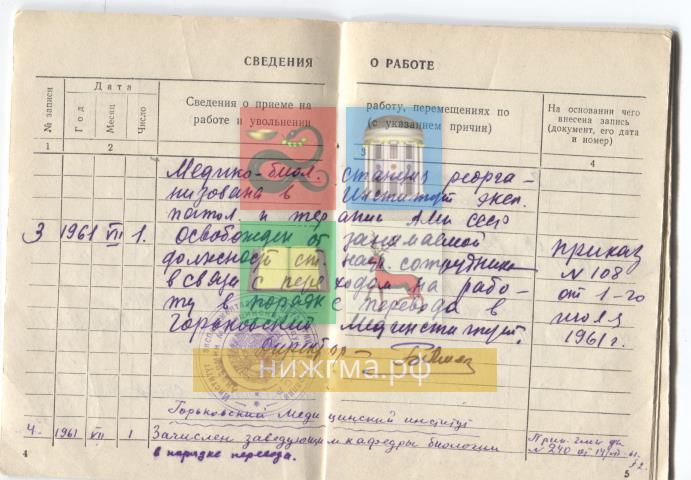 СВЕДЕНИЯ О РАБОТЕ
№ записи
Дата
Год
Месяц
Число
Сведения о приеме на работу, перемещениях по
работе и увольнении (с указанием причин)
На основании чего
внесена запись
(документ, его дата
и номер)
1 2 3 4
Медико-биол. станция реорга-
низована в Институт эксп.
патол. и терапии АМН СССР
3 1961 VII 1. Освобожден от занимаемой
должности ст. науч. сотрудника
в связи с переходом на рабо-
ту в порядке перевода в
Горьковский Мединститут.
приказ
N 108
от 1-го
июля
1961 г.
Директор -
нижгма.рф
Горьковский медицинский институт
4. 1961 VII 1 Зачислен заведующим кафедры биологии
в порядке перевода.
N 240 от
4
5